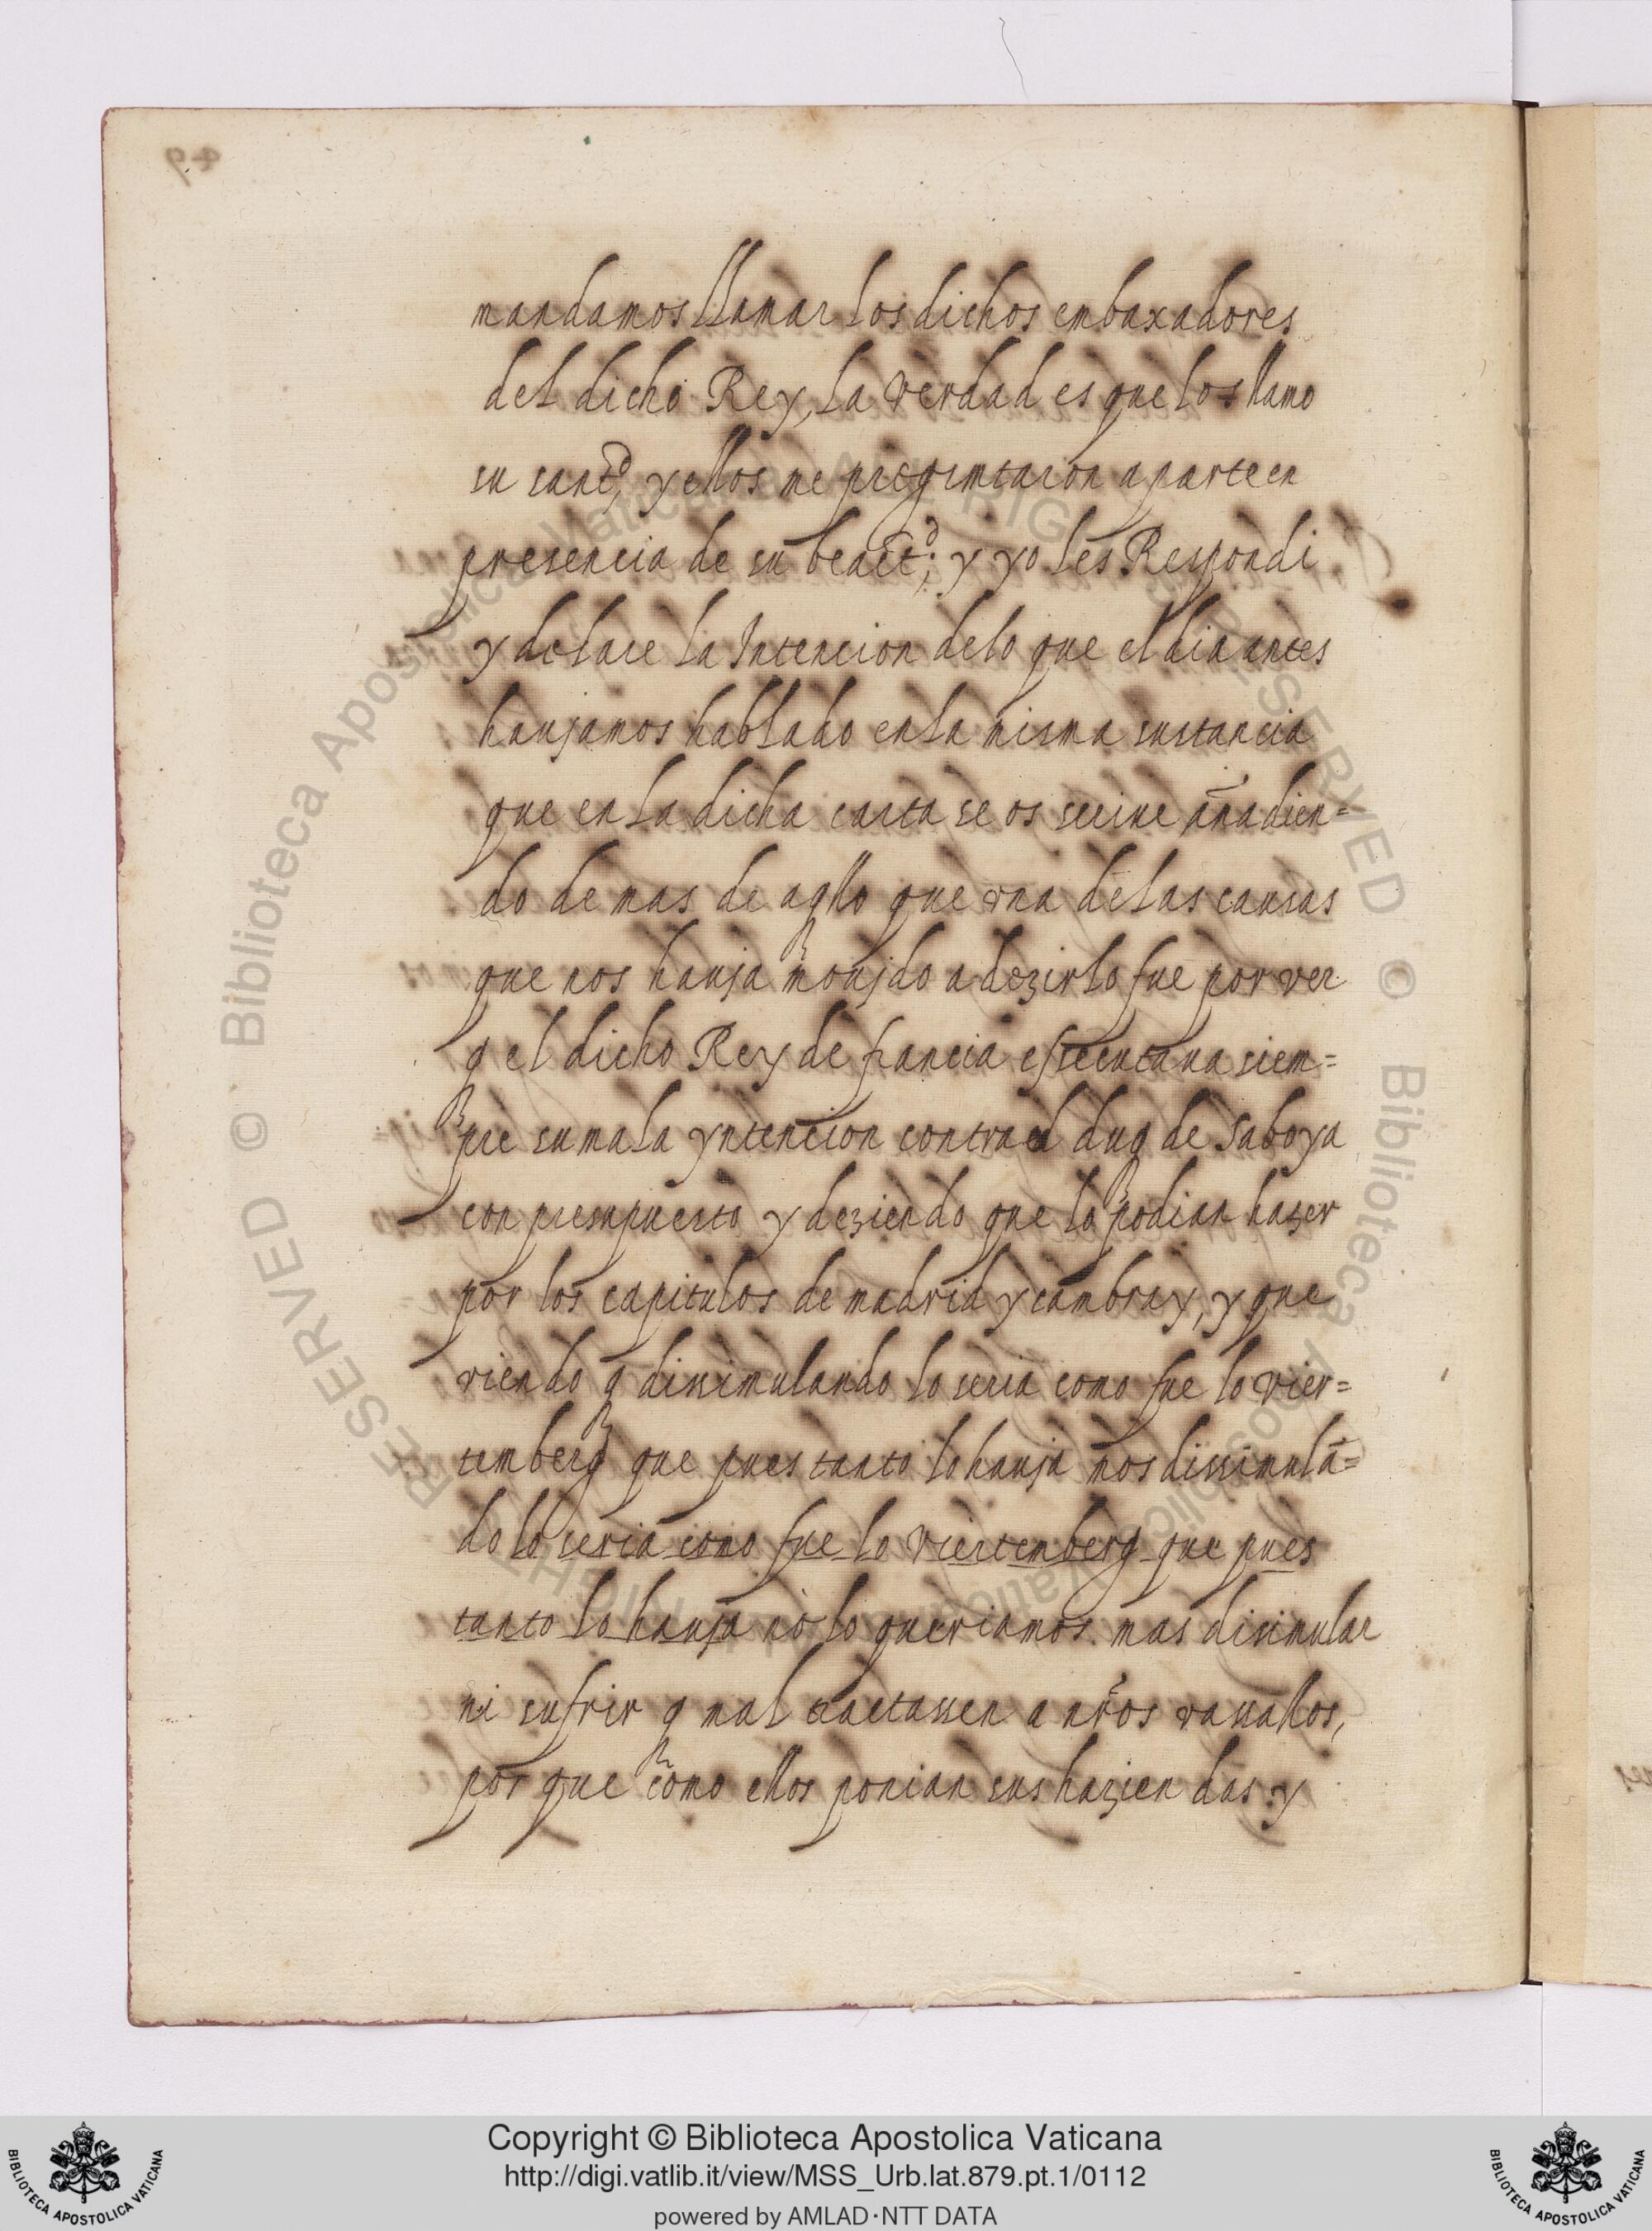 mandamos llamar los dichos embaxadores
del dicho Rey, la verdad es que los llamo
su sanctd, y ellos me preguntaron aparte en
presencia de su beactd; y yo les Respondi
y declare la Intencion delo que el dia antes
hauiamos hablado enla misma sustancia
que en la dicha carta se os scriue añadien=
do de mas de aqllo que vna delas causas
que nos hauia mouido a dezirlo fue por ver
q el dicho Rey de francia essecutaua siem=
pre su mala yntencion contra el duq de Saboya
con presupuesto y deziendo que lo podian hazer
por los capitulos de madrid y cambray, y que
viendo q dissimulando lo seria como fue lo vier=
temberg que pues tanto lo hauia mos dissimulā=
do lo seria como fue lo viertemberg que pues
tanto lo hauia no lo queriamos mas disimular
ni sufrir q mal tractassen a nros vassallos,
por que como ellos ponian sus haziendas y
Copyright © Biblioteca Apostolica Vaticana
http://digi.vatlib.it/view/MSS_Urb.lat.879.pt.1/0112
powered by AMLAD·NTT DATA
BIBLIOTECA APOSTOLICA VATICANA
BIBLIOTECA APOSTOLICA VATICANA